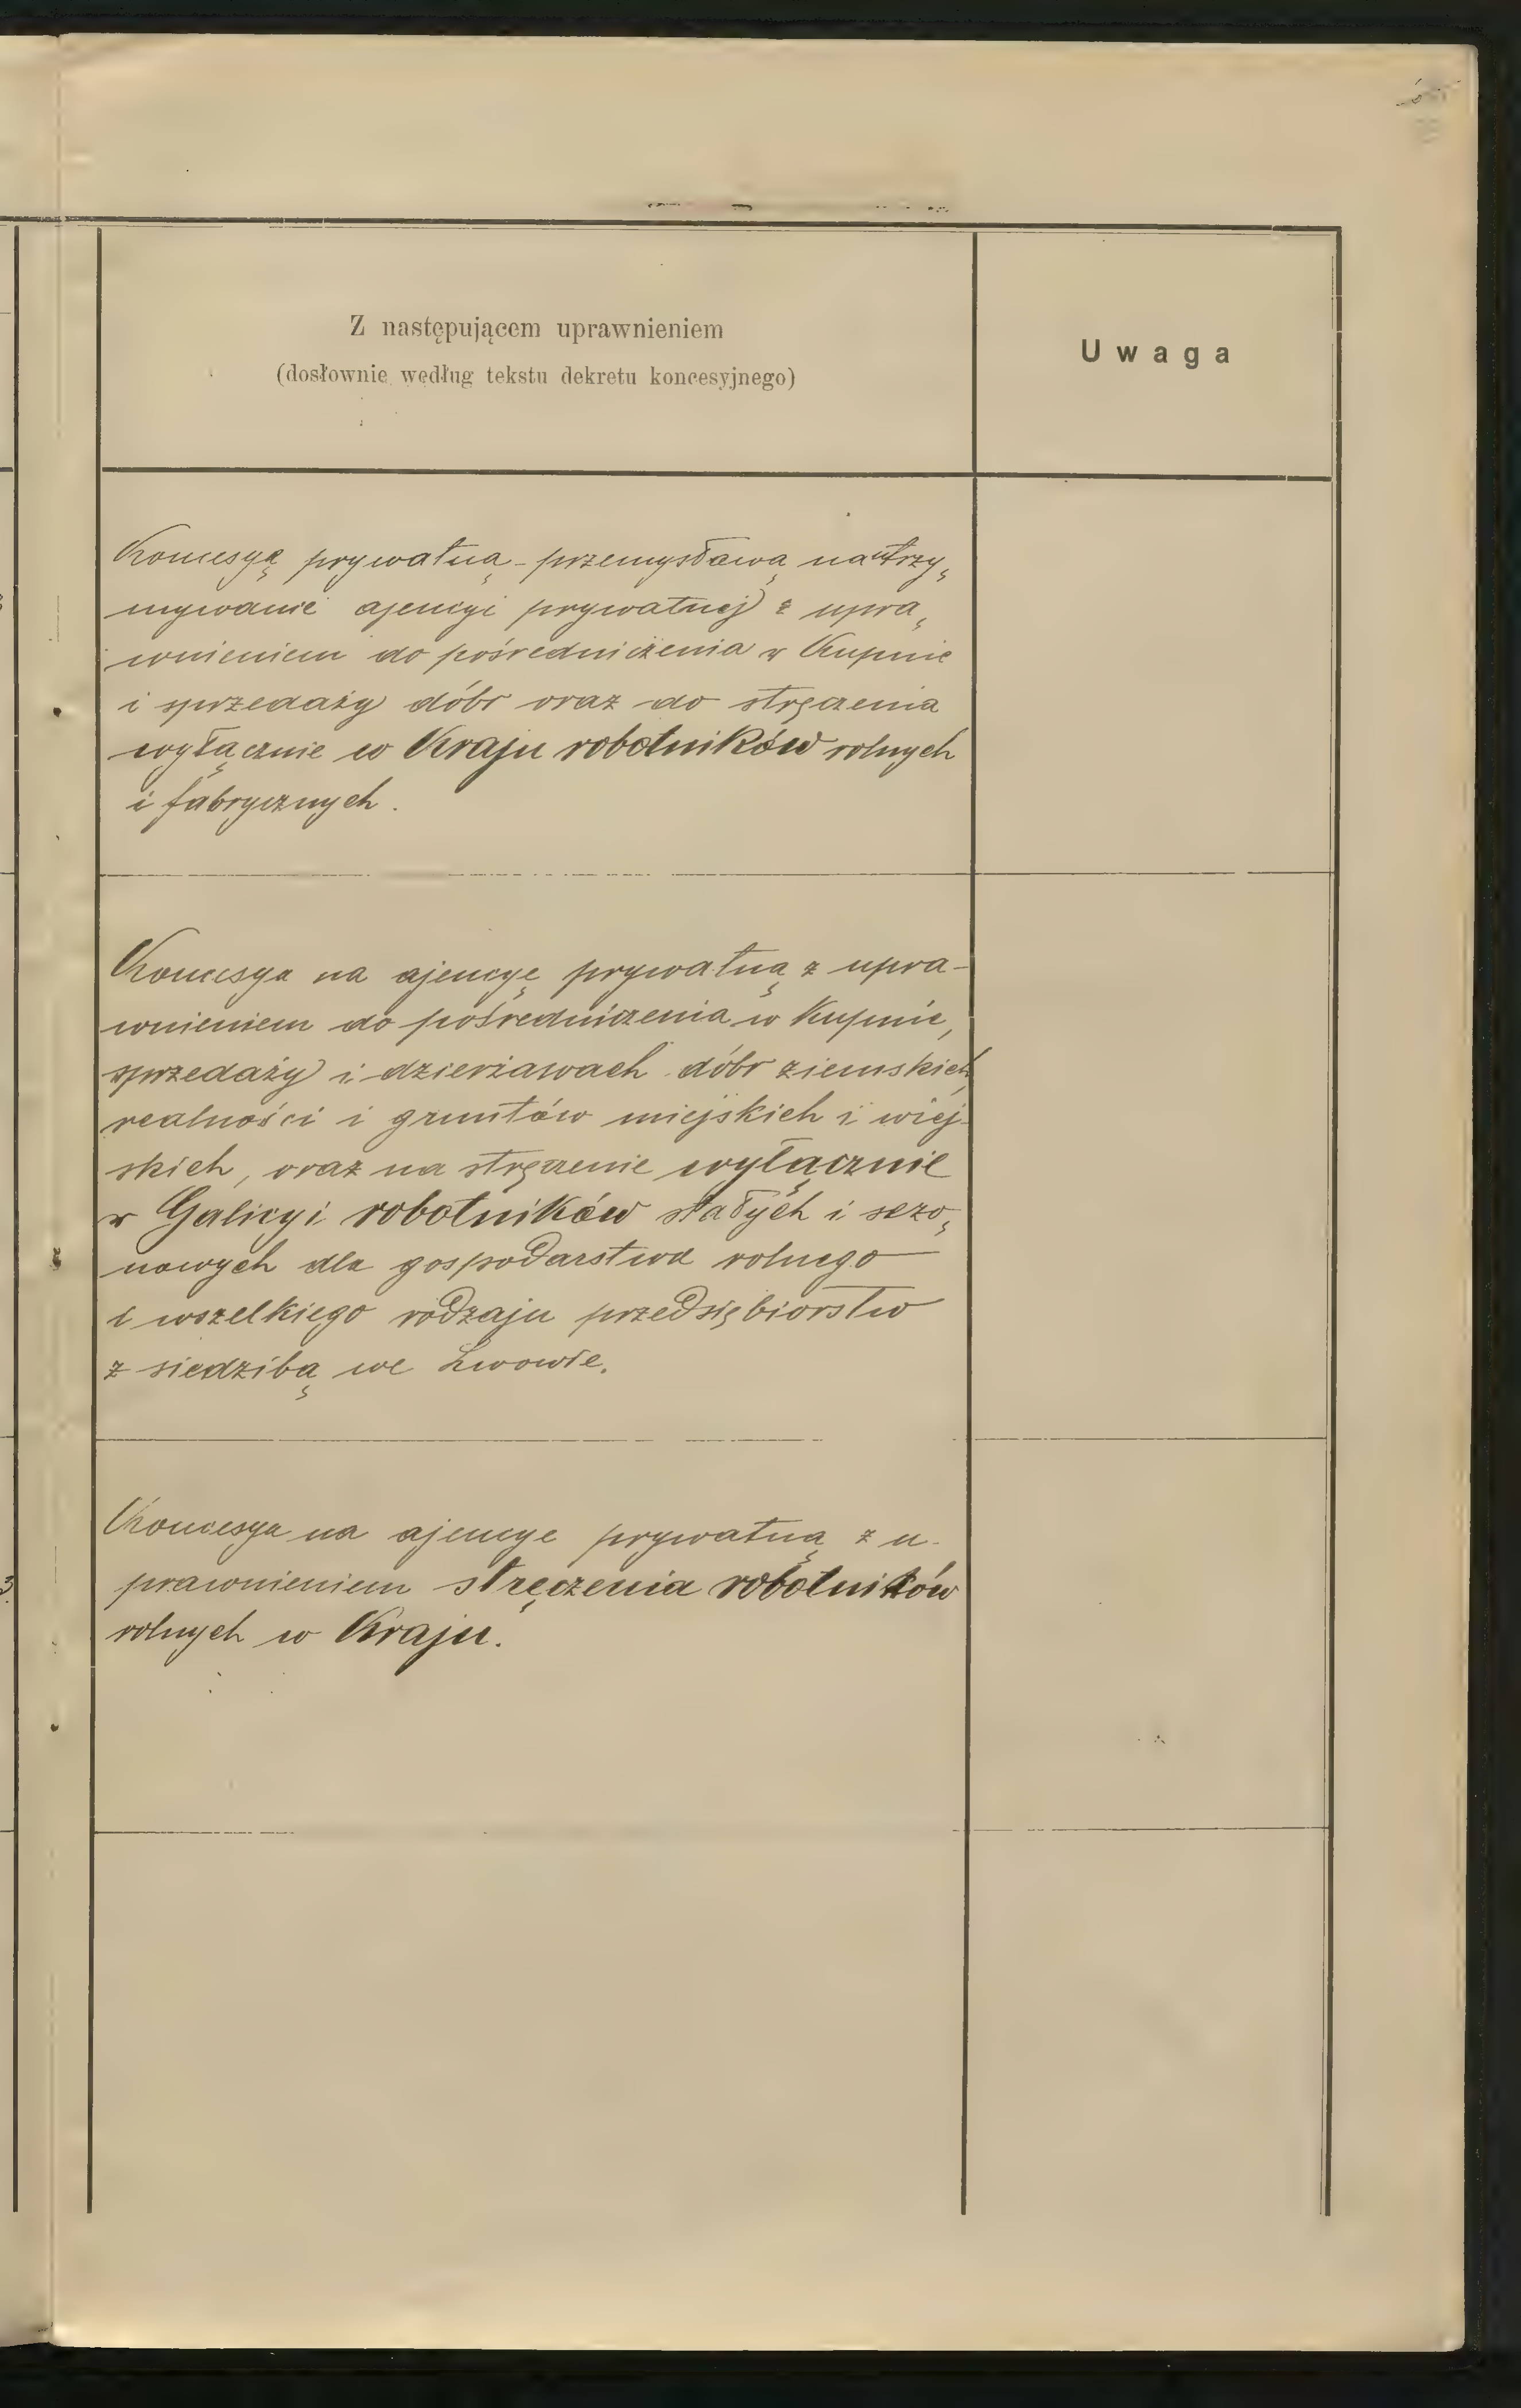 Z następującem uprawnieniem
(dosłownie według tekstu dekretu koncesyjnego)
Uwaga
Koncesyą prywatną - przemysławą na utrzy„
mywanie ajencyi prywatnej z upra„
wnieniem do pośredniczenia w Kupnie
i sprzedaży dóbr oraz do stręczenia
wyłącznie w Kraju robotników rolnych
i fabrycznych.
Koncesya na ajencyę prywatną z upra-
wnieniem do pośredniczenia w Kupnie,
sprzedaży i dzierżawach dóbr ziemskich,
realności i gruntów miejskich i wiej-
skich, oraz na stręczenie wyłącznie
w Galicyi robotników stałych i sezo„
nowych dla gospodarstwa rolnego
i wszelkiego rodzaju przedsiębiorstw
z siedzibą we Lwowie.
Koncesya na ajencye prywatną z u-
prawnieniem stręczenia robotników
rolnych w Kraju.